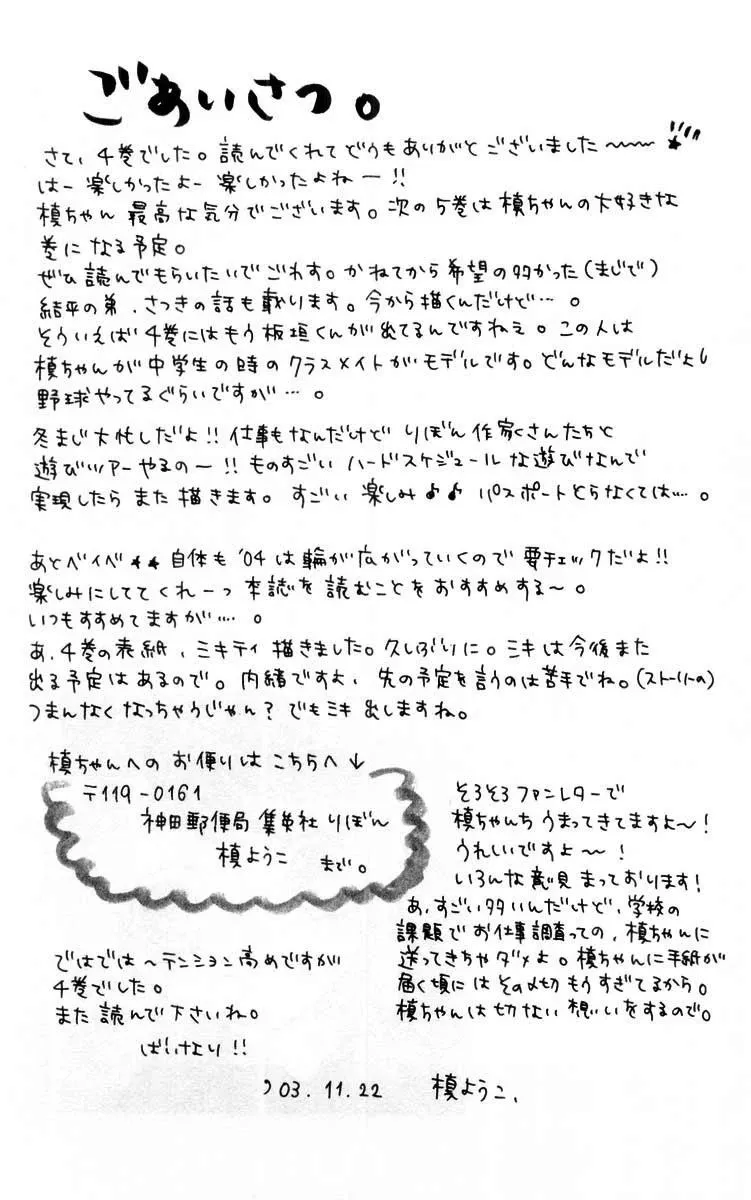 ごあいさつ。
さて、4巻でした。読んでくれてどうもありがとございました〜〜〜
はー楽しかったよー楽しかったよねー!!
槙ちゃん最高な気分でございます。次の5巻は槙ちゃんの大好きな
巻になる予定。
ぜひ読んでもらいたいでごわす。かねてから希望の多かった(まじで)
結平の弟、さつきの話も載ります。今から描くんだけど…。
そういえば4巻にはもう板垣くんが出てるんですねぇ。この人は
槙ちゃんが中学生の時のクラスメイトがモデルです。どんなモデルだよ
野球やってるぐらいですが…。
冬まじ大忙しだよ!!仕事もなんだけどりぼん作家さんたちと
遊びツアーやるの〜!!ものすごいハードスケジュールな遊びなんで
実現したらまた描きます。すごい楽しみ♪♪パスポートとらなくては…。
あとベイベ★★自体も'04は輪が広がっていくので要チェックだよ!!
楽しみにしててくれーっ本誌を読むことをおすすめする〜。
いつもすすめてますが…。
あ、4巻の表紙、ミキティ描きました。久しぶりに。ミキは今後また
出る予定はあるので。内緒ですよ、先の予定を言うのは苦手でね。(ストーリーの)
つまんなくなっちゃうじゃん?でもミキ出しますね。
槙ちゃんへのお便りはこちらへ↓
〒119-0161
神田郵便局 集英社 りぼん
槙ようこ まで。
そろそろファンレターで
槙ちゃんちうまってきてますよ〜!
うれしいですよ〜!
いろんな意見まっております!
あ、すごい多いんだけど、学校の
課題でお仕事調査っての、槙ちゃんに
送ってきちゃダメよ。槙ちゃんに手紙が
届く頃にはその〆切もうすぎてるから。
槙ちゃんは切ない想いをするので。
ではでは〜テンション高めですが
4巻でした。
また読んで下さいね。
ばいなり!!
'03.11.22 槙ようこ、